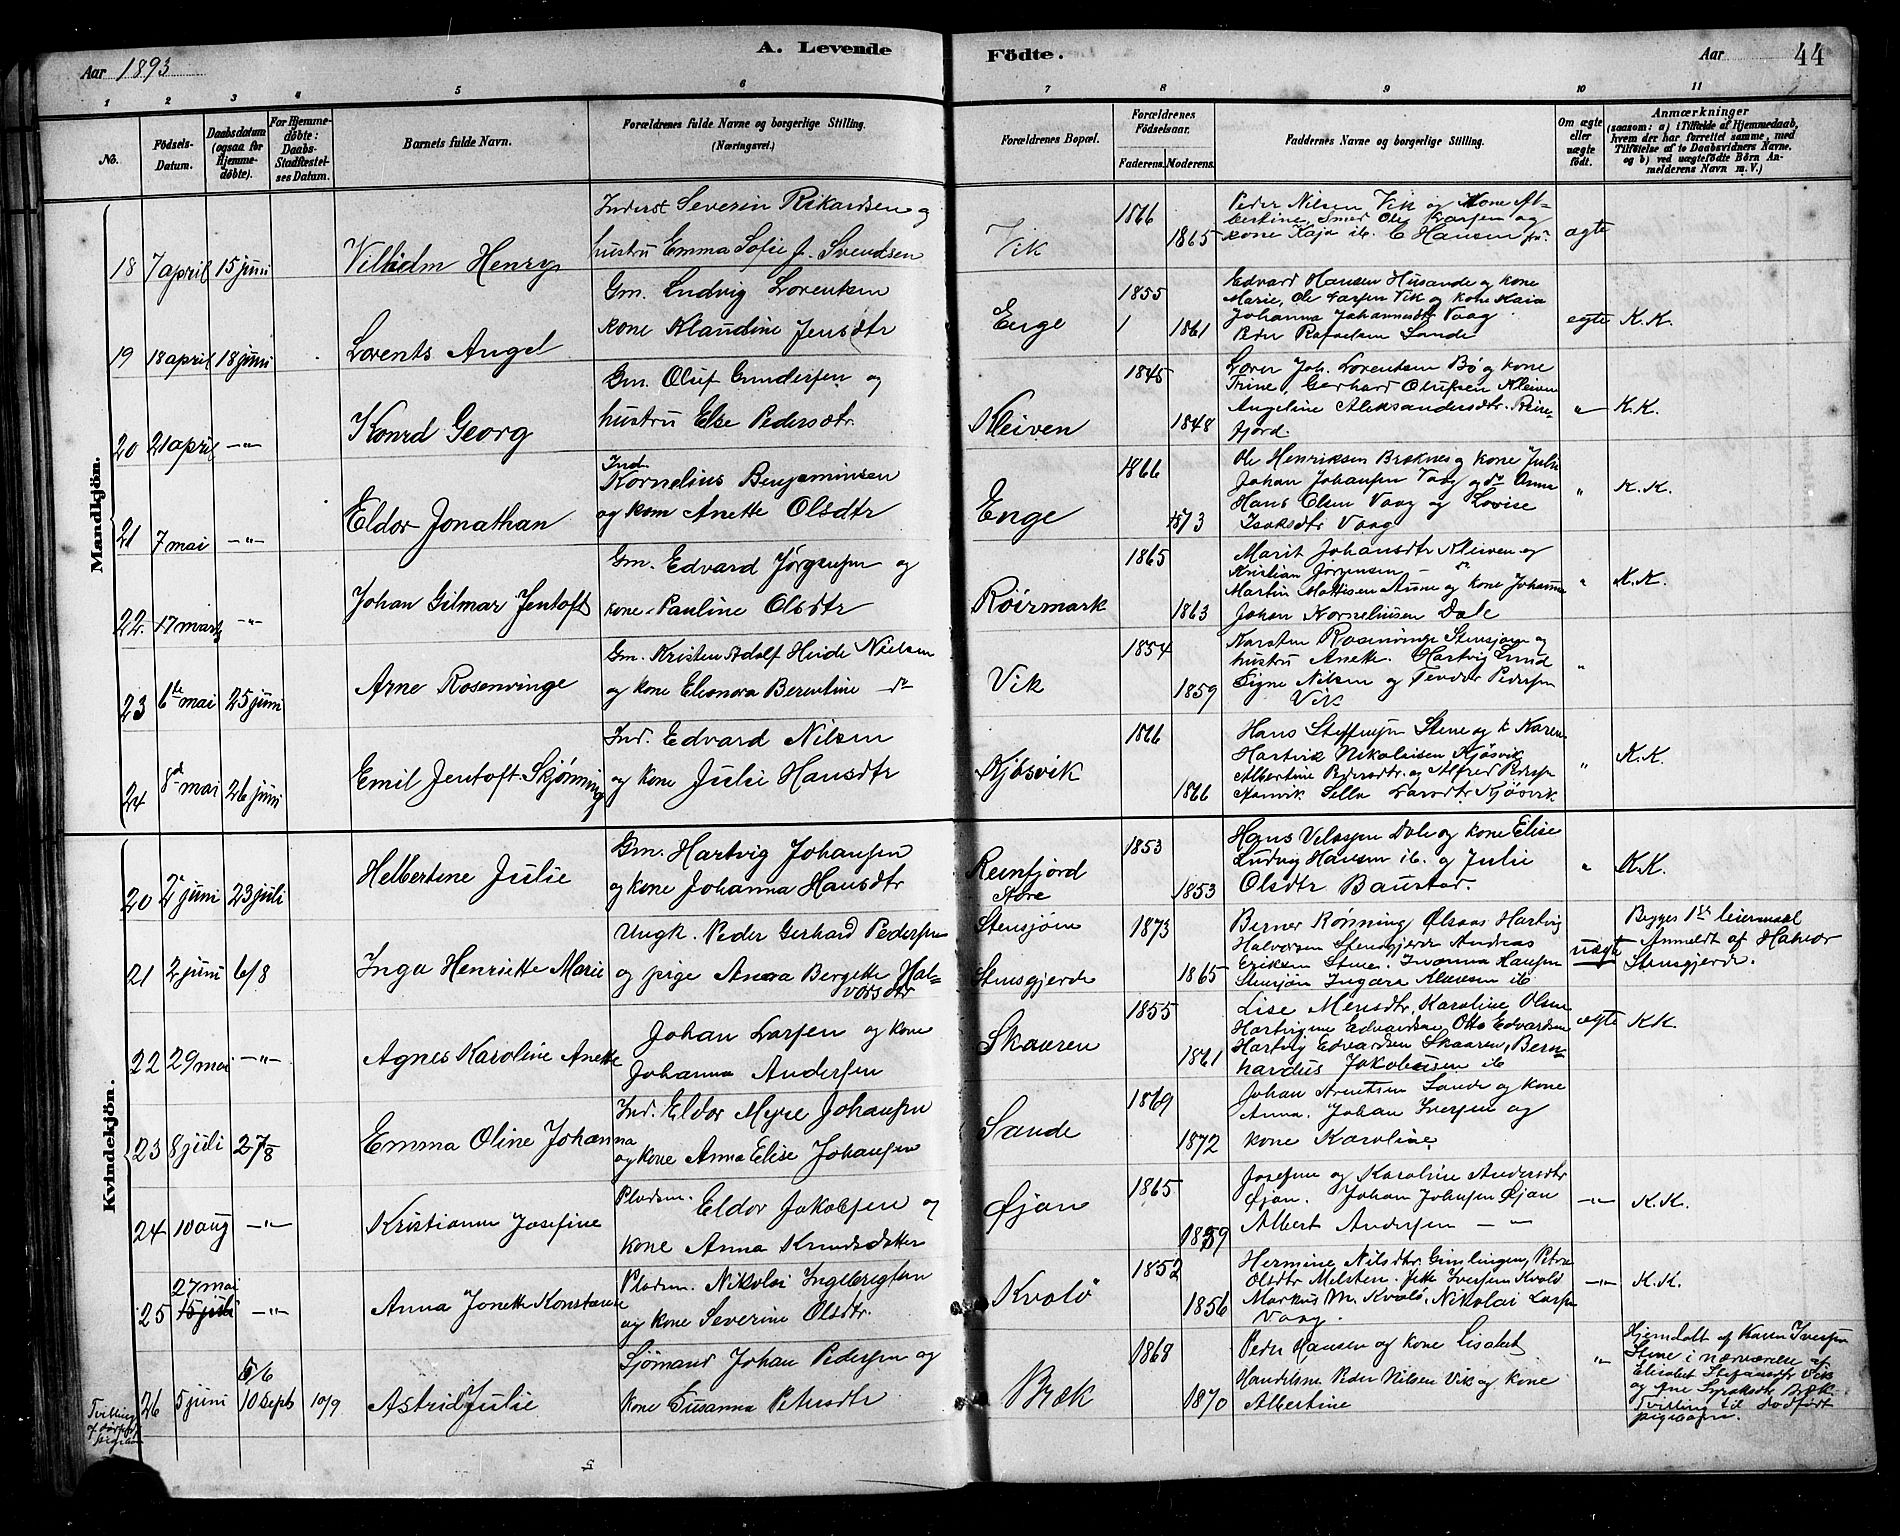 Aar 1893
A. Levende
Födte.
Aar
44
1 2 3 4 5 6 7 8 9 10 11
No.
Födsels-Datum.
Daabsdatum (ogsaa for Hjemmedöbte).
For Hjemmedöbte: Daabs-Stadfæstelses Datum.
Barnets fulde Navn.
Forældrenes fulde Navne og borgerlige Stilling.
(Næringsvei.)
Forældrenes Bopæl.
Forældrenes Födselsaar.
Faderens. Moderens.
Faddernes Navne og borgerlige Stilling.
Om ægte eller uægte födt.
Anmærkninger
(saasom: a) i Tilfælde af Hjemmedaab, hvem der har forrettet samme, med Tilföielse af to Daabsvidners Navne. og b) ved uægtefödte Börn Anmelderens Navn m. V.)
Mandkjön.
18 7 april 15 juni
Vilhelm Henry
Inderst Severin Rikardsen og
hustru Emma Sofie f. Svendsen
Vik
1866
1865
Peder Nilsen Vik og Kone Al-
bertine, Smed Ole Larsen og
kone Kaja ib. C Hansen
ægte
19 18 april 18 juni
Lorents Angel
Gm. Ludvig Lorentsen
kone Klaudine Jensdtr
Enge
1855
1861
Edvard Hansen Husande og kone
Marie, Ole Larsen Vik og kone Kaia
Johanna Johannesdtr Vaag.
Peder Rafaelsen Sande
egte K.K.
20 21 april -"-
Konrd Georg
Gm. Oluf Gundersen og
hustru Else Pedersdtr.
Kleiven
1845
1848
Joh. Lorentsen Bø og kone
Trine, Gerhard Olufsen Kleiven
Angeline Aleksandersdtr. Rein-
fjord.
" K.K.
21 7 mai -"-
Eldor Jonathan
Ind.
Kornelius Benjaminsen
og kone Anette Olsdtr
Enge
1866
1873
Ole Henriksen Bræknes og kone Julie
Johan Johansen Vaag og do Anna
Hans Olsen Vaag og Lovise
Isaksdtr Vaag
" K.K.
22. 17 marts -"-
Johan Gilmar Jentoft
Gm. Edvard Jørgensen og
kone Pauline Olsdtr
Röirmark
1865
1863
Marit Johansdtr Kleiven og
Kristian Jørgensen - do
Martin Mattisen Aune og kone Johanna
Johan Korneliusen Dale
" K.K.
23 6te mai 25 juni
Arne Rosenvinge
Gm. Kristen Adolf Heide Nielsen
og kone Eleonora Berentine do
Vik
1854
1859
Karsten Rosenvinge Stensjøen og
hustru Anette. Hartvig Lund
Signe Nilsen og Teodor Pedersen
Vik
"
24 8d mai 26 juni
Emil Jentoft Skjønning
Ind. Edvard Nilsen
og kone Julie Hansdtr
Kjøsvik
1866
1866
Hans Steffensen Stene og k Karen
Hartvik Nikolaisen Kjøsvik
Albertine Pedersdtr. og Alfred Peders
Larsdtr Kjøsvik
" K.K.
Kvindekjön.
20 2' juni 23 juli
Helbertine Julie
Gm. Hartvig Johansen
og kone Johanna Hansdtr
Reinfjord
store
1853
1853
Hans Dale og kone Elise
Ludvig Hansen ib. og Julie
Olsdtr Baustad.
" K.K.
21 2 juni 6/8
Inga Henriette Marie
Ungk. Peder Gerhard Pedersen
og pige Anna Bergette Hal-
vorsdtr
Stensjøen
Stensgjerde
1873
1865
Berner Rønning Ølsaas Hartvig
Halvorsen Stensgjerde Andreas
Eriksen Stene. Ivanna Hansen
Stensjøen Ingara ib
uægte
Begges 1ste leiermaal
Anmeldt af Halvor
Stensgjerde.
22 29 mai -"-
Agnes Karoline Anette
Johan Larsen og kone
Johanna Andersen
Skaaren
1855
1861
Lise Mensdtr, Karoline Olsen
Hartvigine Edvardsen, Otto Edvardsen
Hartvig Edvardsen Skaaren, Bern-
hardus Jakobsen ib
ægte K.K.
23 8 juli 27/8
Emma Oline Johanna
Ind. Eldor Myre Johansen
og kone Anna Elise Johansen
Sande
1869
1872
Johan Arntsen Sande og kone
Anna. Johan Iversen og
kone Karoline
24 10 aug -"-
Kristianna Josefine
Pladsm. Eldor Jakobsen og
kone Anna Knudsdatter
Øjan
1865
1859
Josefine og Karoline Andersdtr
Øjan. Johan Johnsen Øjan
Albert Andersen - "
-"- K.K.
25 27 mai
15 juli -"-
Anna Jonette Konstanse
Pladsm. Nikolai Ingebrigtsen
og kone Severine Olsdtr.
Kvalö
1852
1856
Hermine Nilsdtr Gimlingen, Petra
Olsdtr Melsten. Jette Iversen Kvalø
Markus M. Kvalö. Nikolai Larsen
Vaag.
-"- K.K.
Tvilling
26 5 juni 5/6
10 Septb 10/9
Astrid Julie
Sjømand Johan Pedersen og
kone Susanna Petersdtr
Bræk
1868
1870
Peder Hansen og kone Lisabet
Handelsm Peder Nilsen Vik og kone
Albertine
"
Hjemdøbt af Karen Iversen
Stene i nærværelse af
Elisabet Stefansdtr Vik
og Ane Syraksdtr Bræk
Tvilling til dødfødt
pigebarn.
5